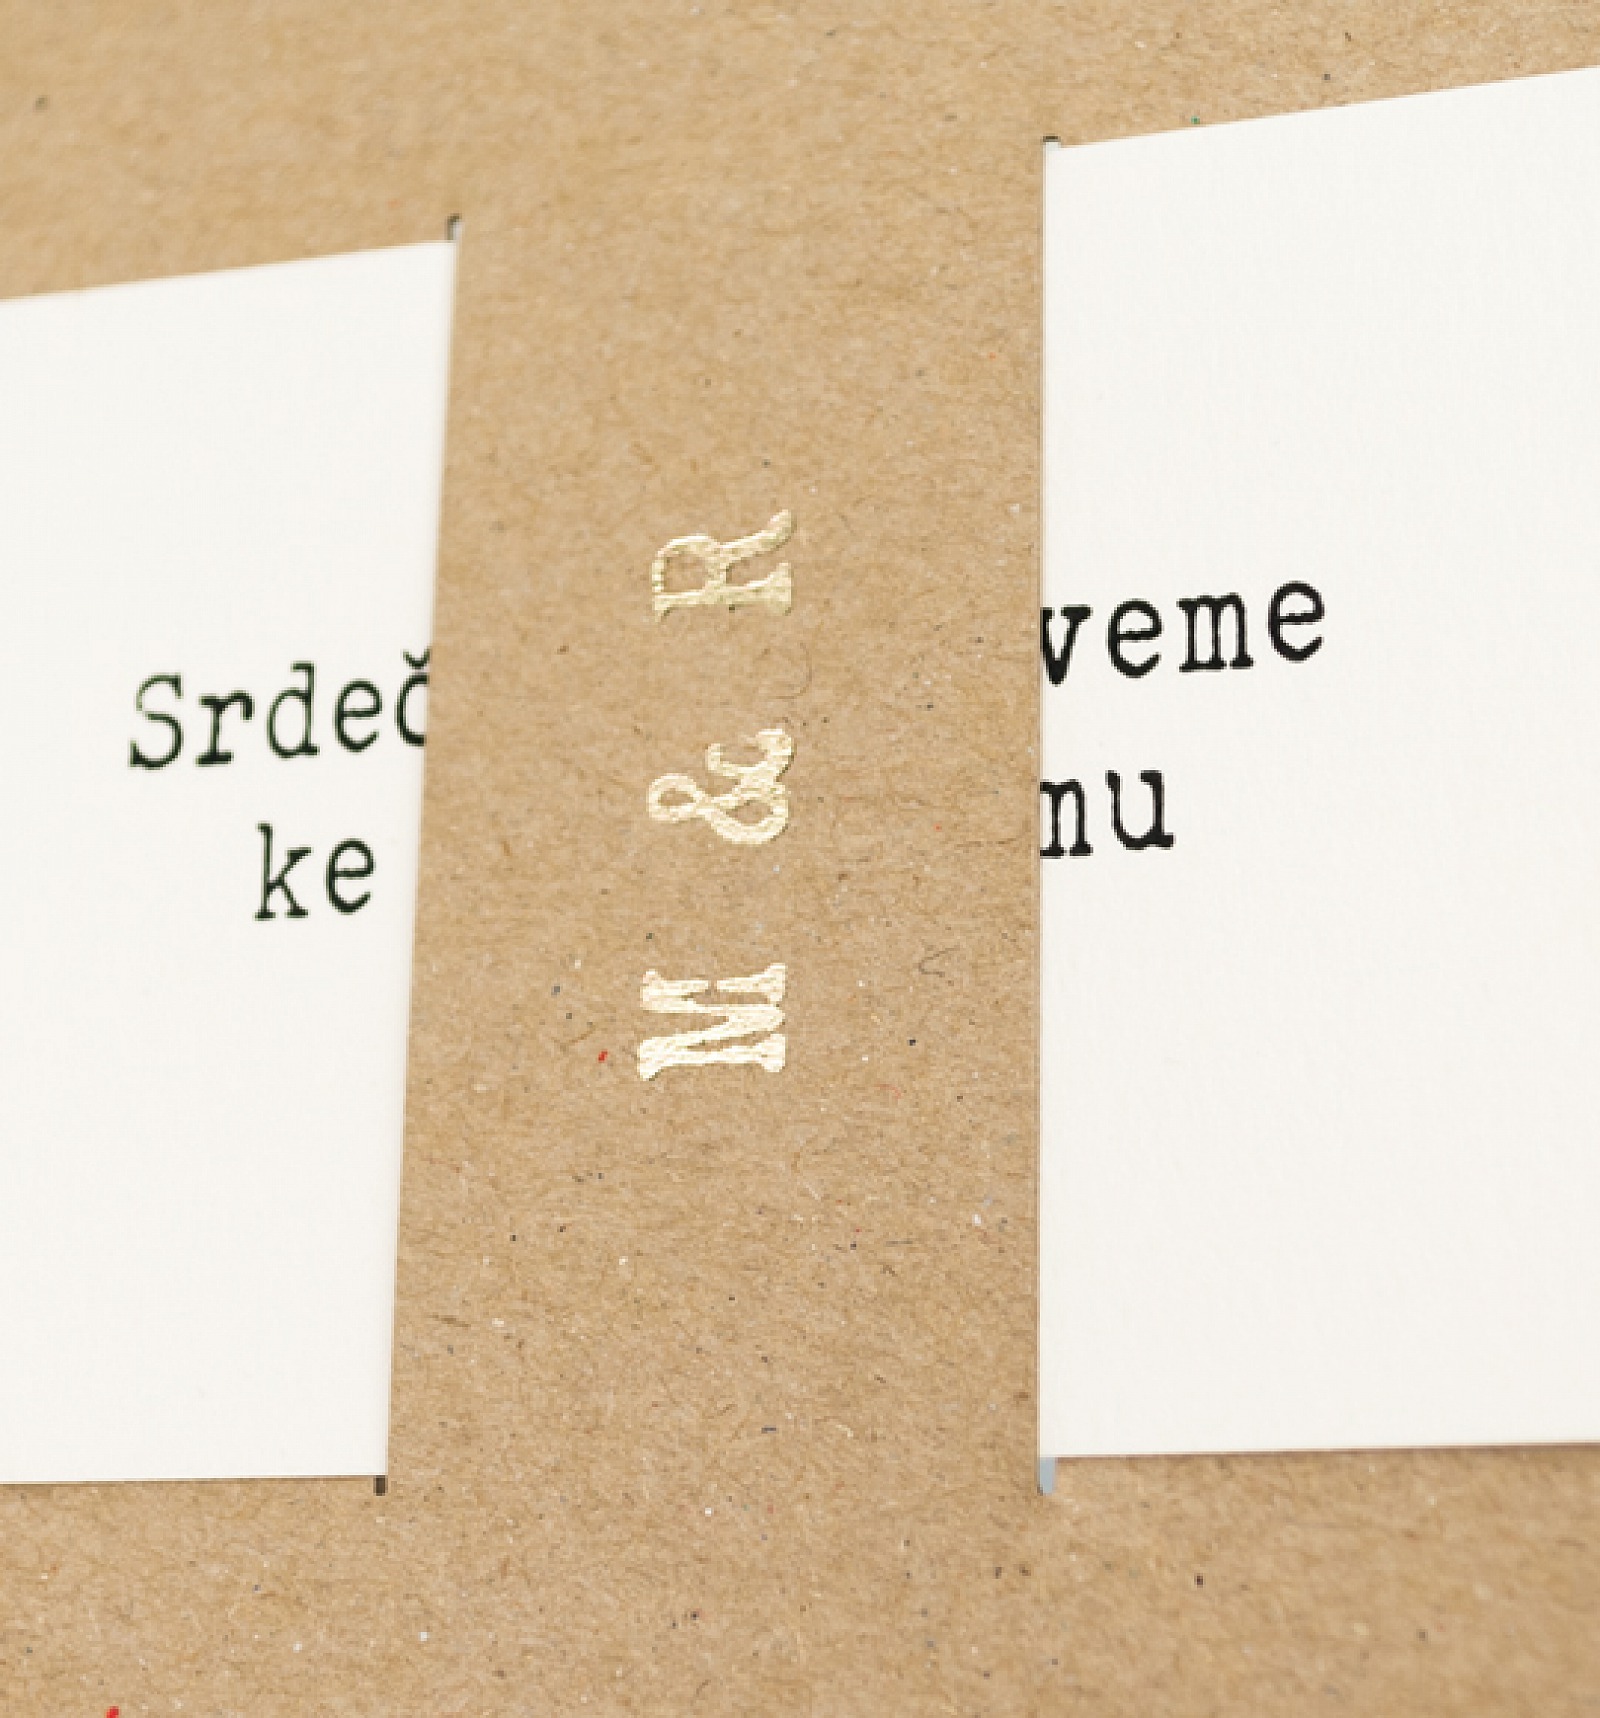 Srdeč
ke
M & R
veme
mu